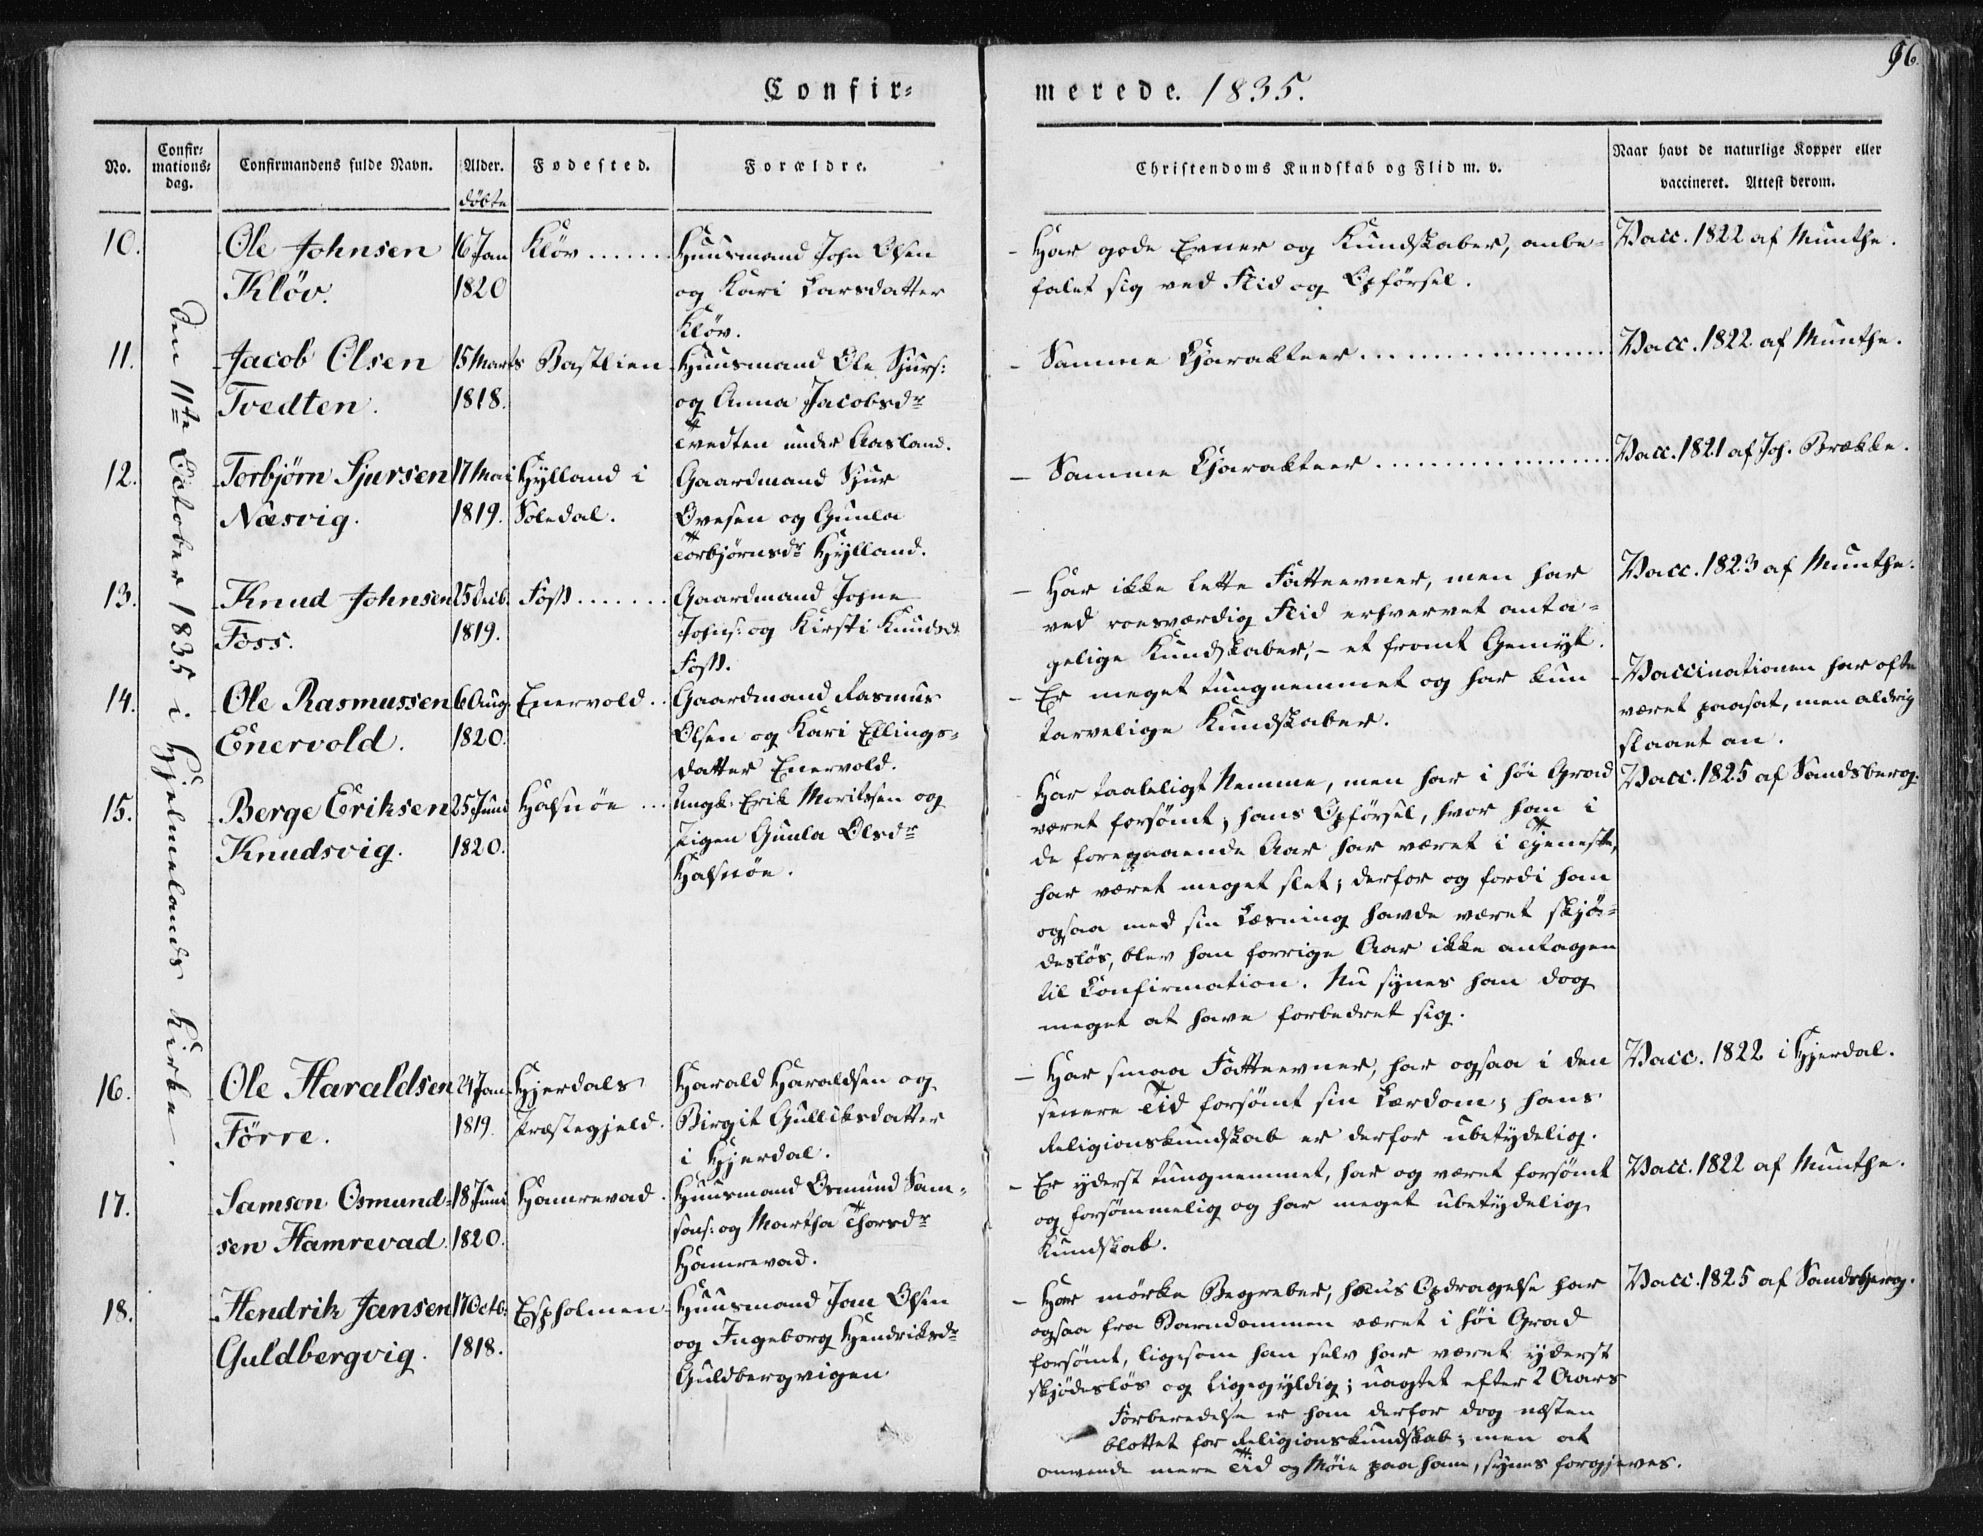 96.
Confir=
merede. 1835.
No.
Confir=
mations=
dag.
Confirmandens fulde Navn.
Alder.
döbte
Fodested.
Forældre.
Christendoms Kundskab og Flid m. v.
Naar havt de naturlige Kopper eller
vaccineret. Attest derom.
Den 11te October 1835 i Hjelmelands Kirke.
10.
Ole Johnsen
Kløv.
16 Jan
1820
Kløv.......
Huusmand John Olsen
og Kari Larsdatter
Kløv.
- Har gode Evner og Kundskaber, anbe=
falet sig ved Flid og Opførsel.
Vacc. 1822 af Munthe.
11.
Jacob Olsen
Tvedten.
15 Marts
1818.
Bastlien
Huusmand Ole Sjurs:
og Anna Jacobsdr
Tvedten under Aasland.
- Samme Charakteer................
Vacc. 1822 af Munthe.
12.
Torbjørn Sjursen
Næsvig.
17 Mai
1819.
Hylland i
Soledal.
Gaardmand Sjur
Ovesen og Gunla
Torbjørnsdr Hylland.
- Samme Charakteer................
Vacc. 1821 af Joh. Brække.
13.
Knud Johnsen
Foss.
25 Decb.
1819.
Foss.......
Gaardmand Johne
Johns: og Kirsti Knudsdr
Foss.
- Har ikke lette Fatteevner, men har
ved roesværdig Flid erhvervet anta=
gelige Kundskaber, - et fromt Gemyt.
Vacc. 1823 af Munthe.
14.
Ole Rasmussen
Enervold.
6 Aug.
1820.
Enervold..
Gaardmand Rasmus
Olsen og Kari Ellings=
datter Enervold.
- Er meget tungnemmet og har kun
tarvelige Kundskaber.
- Vaccinationen har ofte
været paasat, men aldrig
slaaet an.
15.
Berge Eriksen
Knudsvig.
25 Juni
1820.
Halsnøe...
Ungk: Erik Meritssen og
Pigen Gunla Olsdr
Halsnøe.
Har taaleligt Nemme, men har i høi Grad
været forsømt; hans Opførsel, hvor han i
de foregaaende Aar har været i Tjeneste,
har været meget slet; derfor og fordi han
ogsaa med sin Læsning havde været skjø=
desløs, blev han forrige Aar ikke antagen
til Confirmation. Nu synes han dog
meget at have forbedret sig.
Vacc. 1825 af Sandsberg.
16.
Ole Haraldsen
Førre.
24 Jan.
1819.
Hjerdals
Præstegjeld.
Harald Haraldsen og
Birgit Gulliksdatter
i Hjerdal.
- Har smaa Fatteevner, har ogsaa i den
senere Tid forsømt sin Lærdom; hans
Religionskundskab er derfor ubetydelig.
Vacc. 1822 i Hjerdal.
17.
Samson Osmund-
sen Hamrevad.
18 Juni
1820.
Hamrevad.
Huusmand Osmund Sam=
sons: og Martha Thorsdr
Hamrevad.
- Er yderst tungnemmet, har og været forsømt
og forsømmelig og har meget ubetydelig
Kundskab.
Vacc. 1822 af Munthe.
18.
Hendrik Jansen
Guldbergvig.
17 Octb:
1818.
Espholmen
Huusmand Jan Olsen
og Ingeborg Hendriksdr
Guldbergvigen
- Har mørke Begreber, hans Opdragelse har
ogsaa fra Barndommen været i høi Grad
forsømt, ligesom han selv har været yderst
skjødesløs og ligegyldig; uagtet efter 2 Aars
Forberedelse er han derfor dog næsten
blottet for Religionskundskab; men at
anvende mere Tid og Møie paa ham, synes forgjæves.
Vacc. 1825 af Sandsberg.